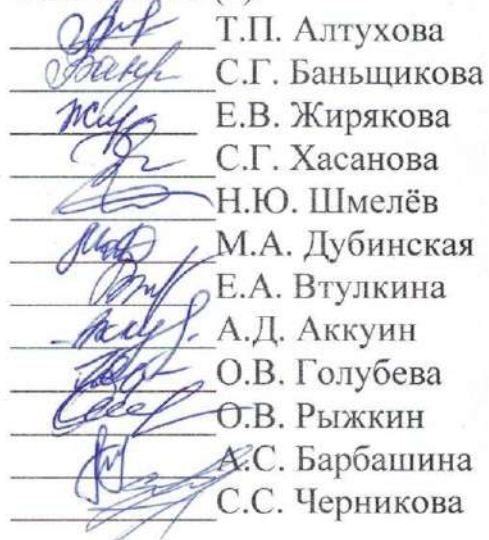 Т.П. Алтухова
С.Г. Баньщикова
Е.В. Жирякова
С.Г. Хасанова
Н.Ю. Шмелёв
М.А. Дубинская
Е.А. Втулкина
А.Д. Аккуин
О.В. Голубева
О.В. Рыжкин
А.С. Барбашина
С.С. Черникова